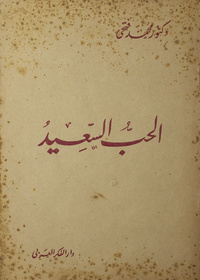 دكتور محمد فتحي
الحبُّ السَّعِيدُ
دار الفكر العربي